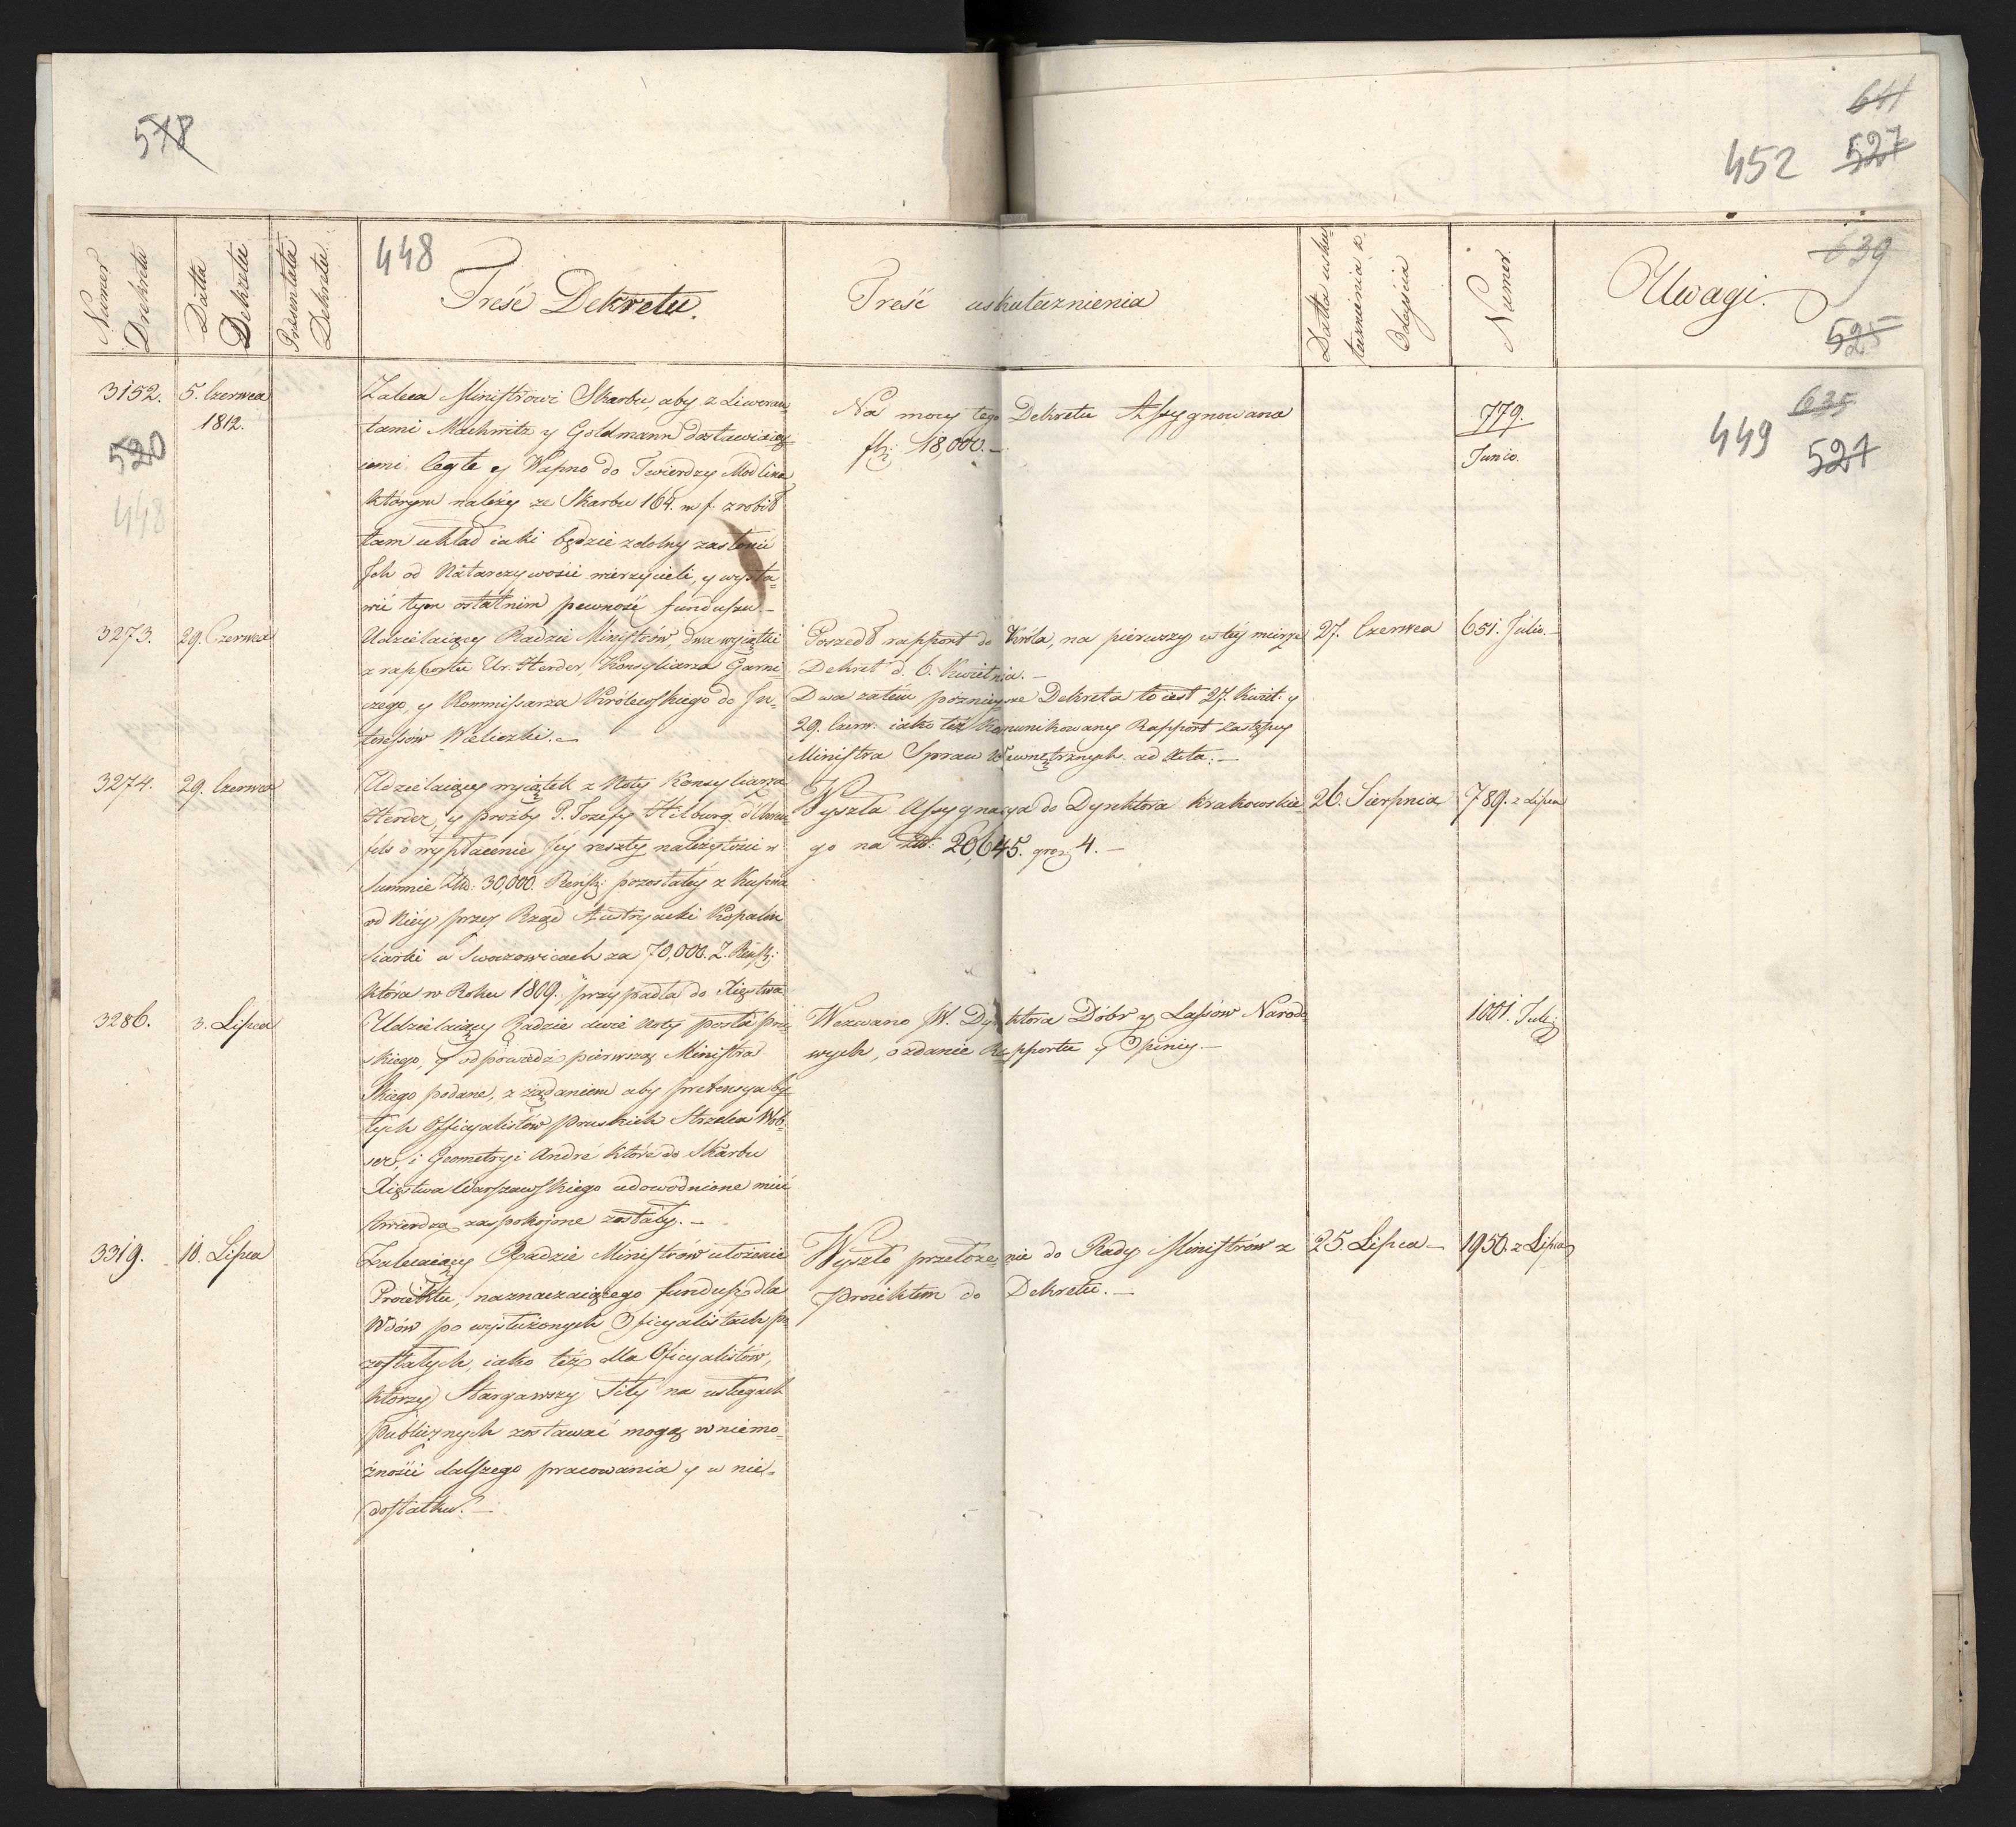 518
611
452 527
Numer Drekretu
Datta Dekretu
Prezentata Dekretu
448
Treść Dekretu.
Treść uskutecznienia
Datta usku-
tecznienia z
Odeyścia
Numer.
Uwagi.
639
525
3152.
5. Czerwca
1812.
520
448
Zaleca Ministrowi Skarbu, aby z Liweran-
tami Machwitz y Goldmann dostawiaią-
cemi Cegłe y Wapno do Twierdzy Modlina
którym należy ze Skarbu 164. m f. zrobił
tam układ iaki będzie zdolny zasłonić
Ich od Natarczywości wierzycieli, y wysta-
wić tym ostatnim pewność funduszu. —
Na mocy tego Dekretu Assygnowana
fl: 18,000. —
779.
Junio.
635
449
527
3273.
29. Czerwca
Udzielaiący Radzie Ministrów, dwa wyiątki
z rapportu Ur. Herder, Konsyliarza Gorni-
czego, y Kommissarza Królewskiego do In-
teressów Wieliczki. —
Poszedł rapport do Króla, na pierwszy w tey mierze
Dekret d. 6. Kwietnia. —
Dwa zatém poznieysze Dekreta to iest 27. Kwiet: y
29. Czerw: iako też Komunikowany Rapport Zastępcy
Ministra Spraw Wewnętrznych ad Acta. —
27. Czerwca
651. Julio. —
3274.
29. Czerwca
Udzielaiący wyiątek z Noty Konsyliarza
Herder, y prozby P. Jozefy Hilburg
o wypłacenie Jéy reszty należytości w
Summie Złł: 30,000. Reńsk: pozostałéy z Kupna
od Niéy przez Rząd Austryacki Kopalni
siarki w Swoszowicach za 70,000. Z. Reńsk:
która w Roku 1809. przypadła do Xięstwa
Wyszła Assygnacya do Dyrektora Krakowskie-
go na złł: 20,645. gro: 4. —
26. Sierpnia
789. z Lipca
3286.
3. Lipca
Udzielaiący Radzie dwie Noty posła Pru-
skiego, y odpowiedź pierwszą Ministra
skiego podane, z żądaniem aby pretensya by-
łych Officyalistów Pruskich Strzelca Wob-
ser, i Geometryi André które do Skarbu
Xięstwa Warszawskiego udowodnione mieć
twierdzą zaspokojone zostały. —
Wezwano JW. Dyrektora Dóbr y Lassów Narodo-
wych, o zdanie Rapportu y Opinii. —
1001. Juli:
3319.
10. Lipca
Zalecaiący Radzie Ministrów ułożenie
Proiektu, naznaczaiącego fundusz dla
Wdów po wysłużonych Oficyalistach po-
zostałych, iako też dla Oficyalistów,
którzy Stargawszy Siły na usługach
Publicznych zostawać mogą w niemo-
żności dalszego pracowania y w nie-
dostatku. —
Wyszło przełożenie do Rady Ministrów z
Proiektem do Dekretu. —
25. Lipca —
1950. z Lipca